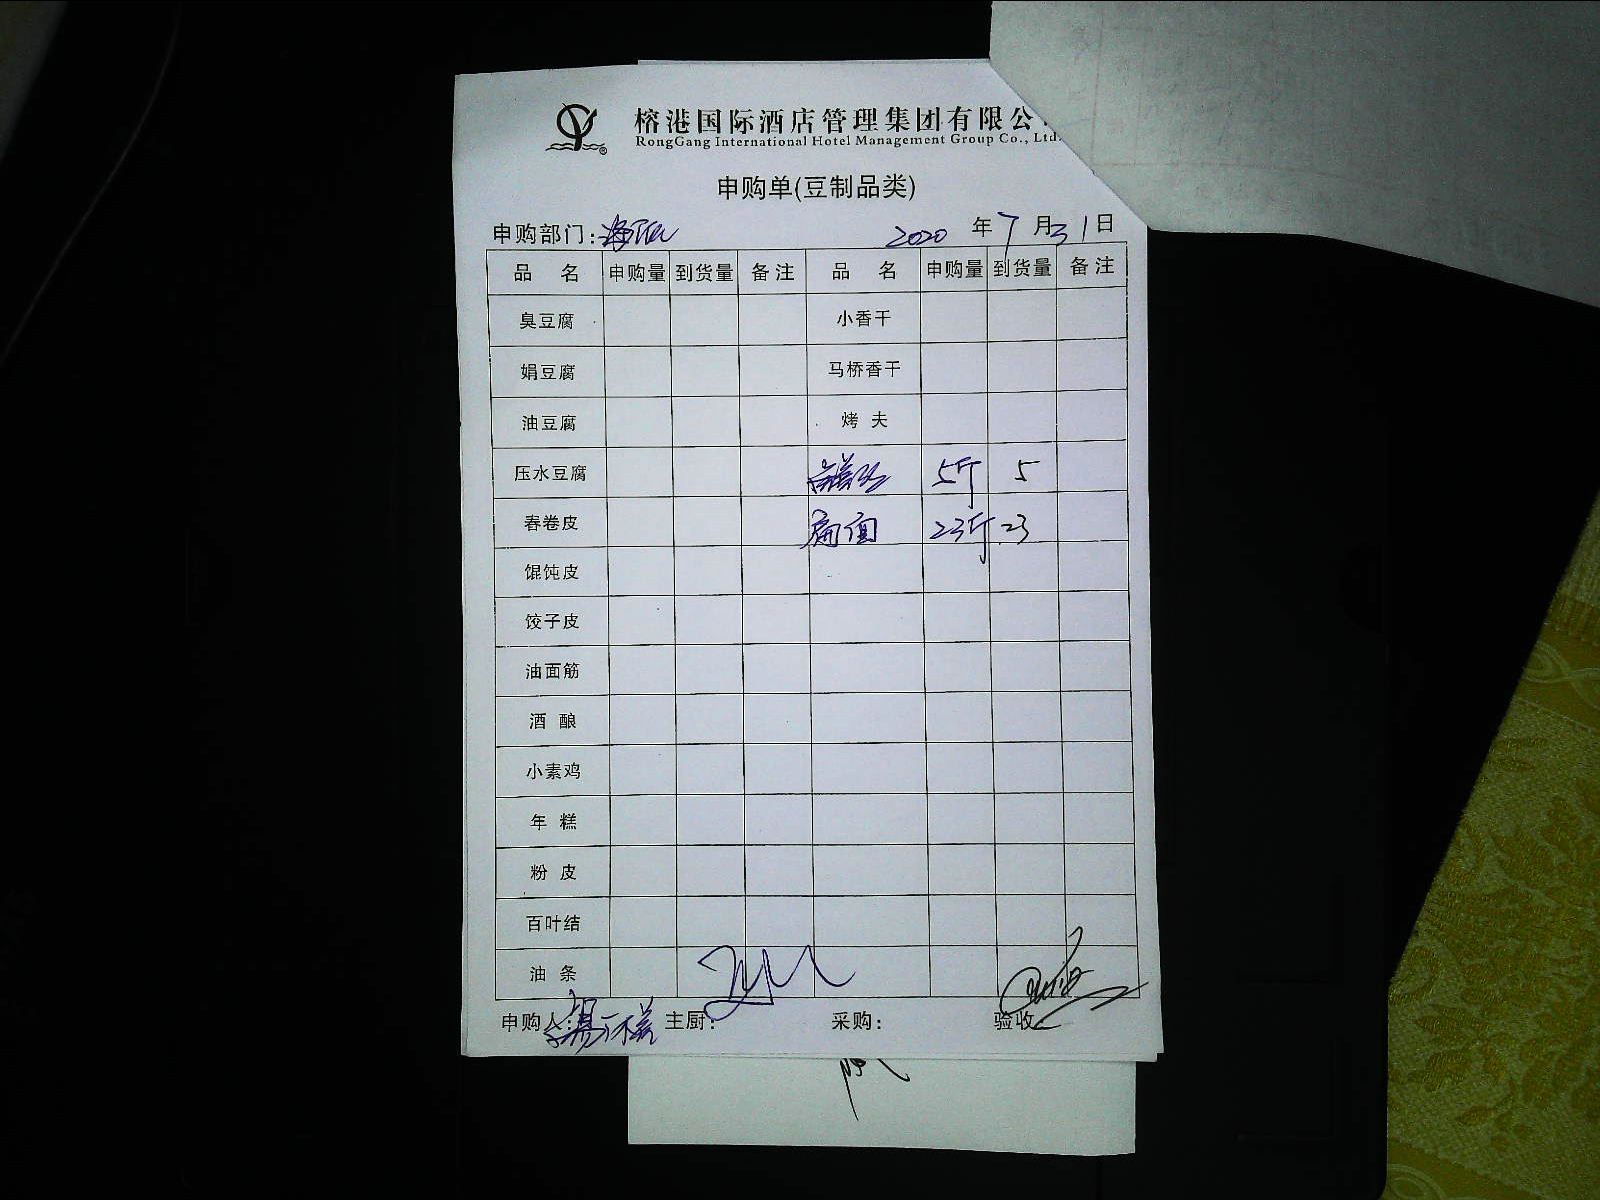 榕港国际酒店管理集团有限公
RongGang International Hotel Management Group Co., Ltd.
申购单(豆制品类)
申购部门: 2020 年 7 月 31 日
品 名 申购量 到货量 备注 品 名 申购量 到货量 备注
臭豆腐 小香干
娟豆腐 马桥香干
油豆腐 烤 夫
压水豆腐 5斤 5
春卷皮 扁面 23斤 23
馄饨皮
饺子皮
油面筋
酒 酿
小素鸡
年 糕
粉 皮
百叶结
油 条
申购人: 主厨: 采购: 验收